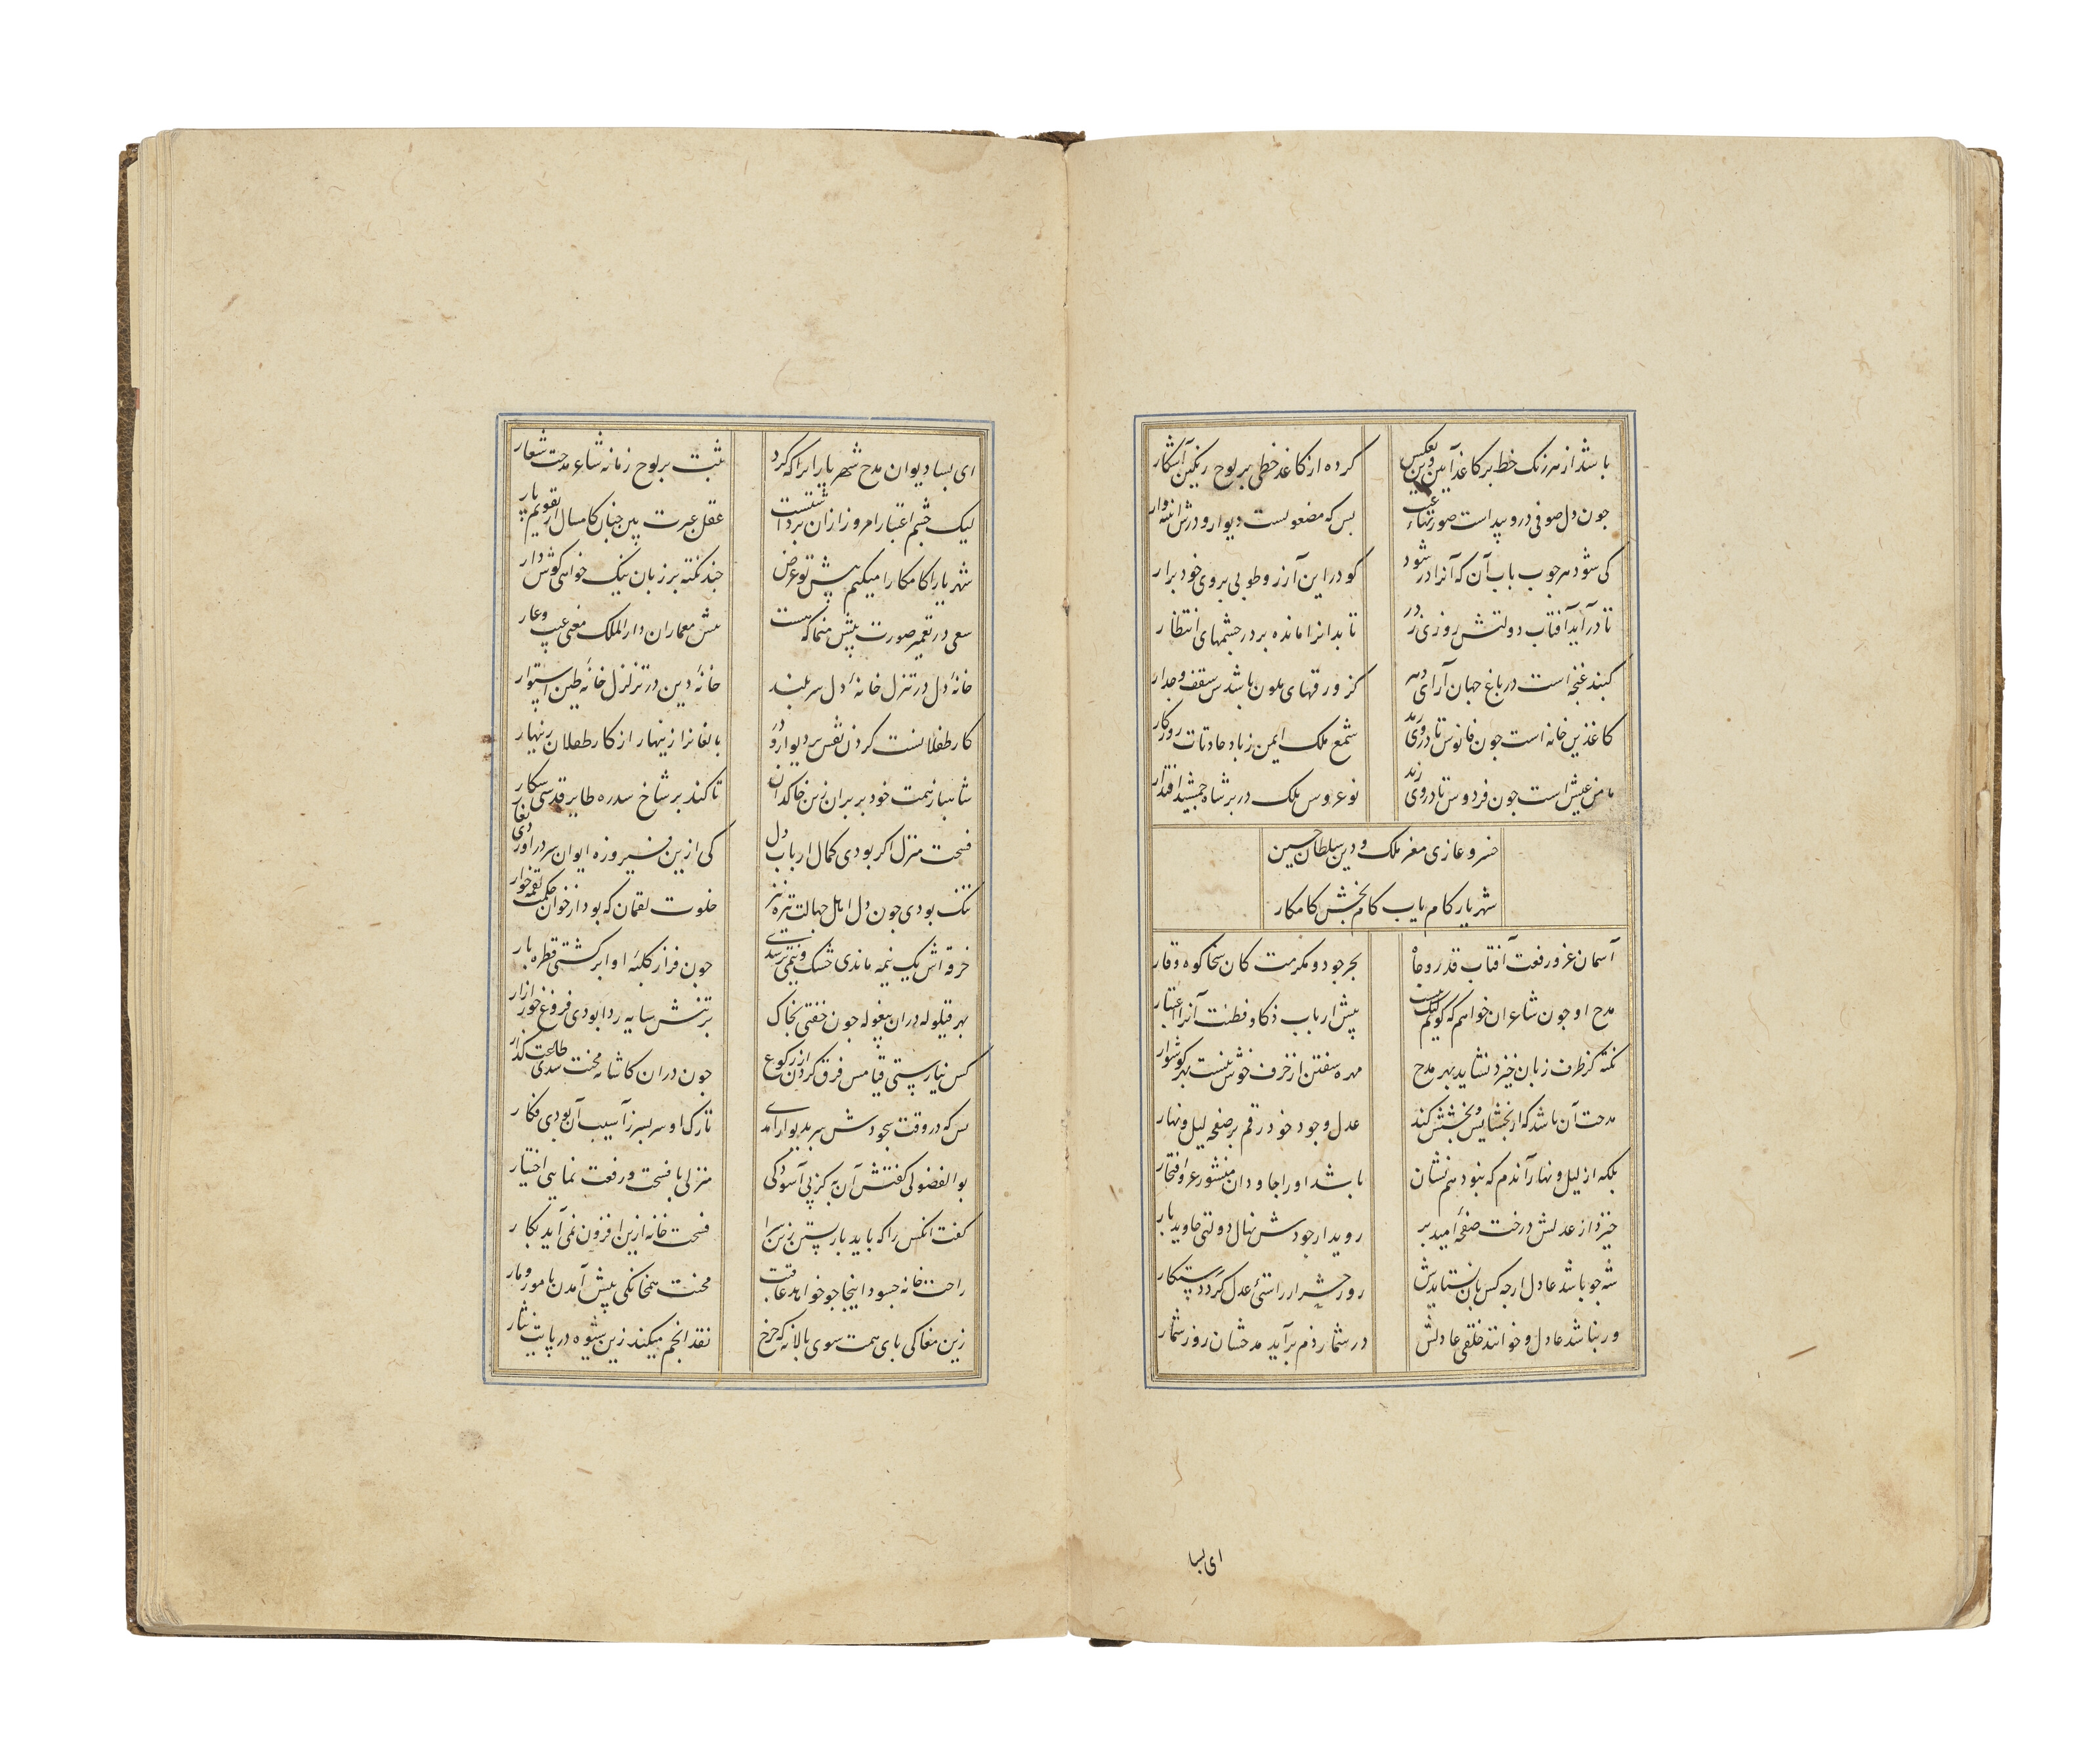 باشد از هر رنگ خط بر کاغذ آیین وبعکس کرده از کاغذ خطی بر لوح رنگین آشکار
چون دل صوفی درو پیداست صورتهاء غیب بس که مصقولست دیوار و درش آئینه وار
کی شود هر چوب باب آن که آنرا در شود کو در این آرزو طوبی بروی خود برار
تا درآید آفتاب دولتش روزی ز در تابدانرا مانده بر در چشمهای انتظار
گنبد غنچه است در باغ جهان آرای ده کز ورقهای ملون باشدش سقف و جدار
کاغذین خانه است چون فانوس تا در وی رمد شمع ملک ایمن ز باد حادثات روزکار
مامن عیش است چون فردوس تا در وی نوعروس ملک در بر شاه جمشید اقتدار
خسرو غازی معز ملک و دین سلطان حسین
شهریار کام یاب کام بخش کامکار
آسمان عز و رفعت آفتاب قدر و جاه بحر جود و مکرمت کان سخا کوه وقار
مدح او چون شاعران خواهم که کویم لیک نیست پیش ارباب ذکا و فطنت آنرا اعتبار
نکته کز طرف زبان خیزد نشاید بهر مدح مهره سفتن از خزف خوش نیست بهر کوشوار
مدحت آن باشد که از بخشایش و بخشش کند عدل و جود خود رقم بر صفحه لیل و نهار
بلکه از لیل و نهار آندم که نبود هم نشان باشد او را جاودان منشور عز و افتخار
خیزد از عدلش درخت صفهٔ امید بر روید از جودش نهال دولتی جاوید بار
شه چو باشد عادل ارچه کس بان نستایدش روز حشر از راستئ عدل کردد رستکار
ور نباشد عادل و خوانند خلقی عادلش در شمار ذم برآید مدحشان روز شمار
ای بسا
ای بسا دیوان مدح شهریارانرا که کرد ثبت بر لوح زمانه شاعر مدحت شعار
لیک چشم اعتبار امروز ازان برداشتست عقل عبرت بین چنان کامسال از تقویم پار
شهریارا کامکارا میکنم پیش تو عرض چند نکته بر زبان نیک خواهی کوش دار
سعی در تعمیر صورت پیش منما که هست پیش معماران دار الملک معنی عیب و عار
خانهٔ دل در تنزل خانهٔ دل سر بلند خانهٔ دین در تزلزل خانهٔ طین استوار
کار طفلانست کردن نقش بر دیوار و در بالغانرا زینهار از کار طفلان زینهار
شاهباز همت خود بر بران زین خاکدان تا کند بر شاخ سدره طایر قدسی شکار
فسحت منزل اکر بودی کمال ارباب دل کی ازین فیروزه ایوان سر در آوردی بغار
تنک بودی چون دل اهل جهالت تیره نیز خلوت لقمان که بود از خوان حکمت لقمه خوار
خرقه اش یک نیمه ماندی خشک و نیمی تر شدی چون فراز کلبهٔ او ابر کشتی قطره بار
بهر قیلوله دران بیغوله چون خفتی بخاک بر تنش سایه ردا بودی فروغ خور ازار
کس نیارستی قیامش فرق کردن از رکوع چون دران کاشانه محنت شدی طاعت کذار
بس که در وقت سجودش سر بدیوار آمدی تارک او سر بسر ز آسیب آن بودی فکار
بو الفضولی کفتش آن به کز پی آسودکی منزلی با فسحت و رفعت نمایی اختیار
کفت آنکس را که باید بار بستن زین سرا فسحت خانه ازین افزون نمی آید بکار
راحت خانه چسود اینجا چو خواهد عاقبت محنت همخانکی پیش آمدن با مور و مار
زین مغاکی پای همت سوی بالا نه که چرخ نقد انجم میکند زین شیوه در پایت نثار